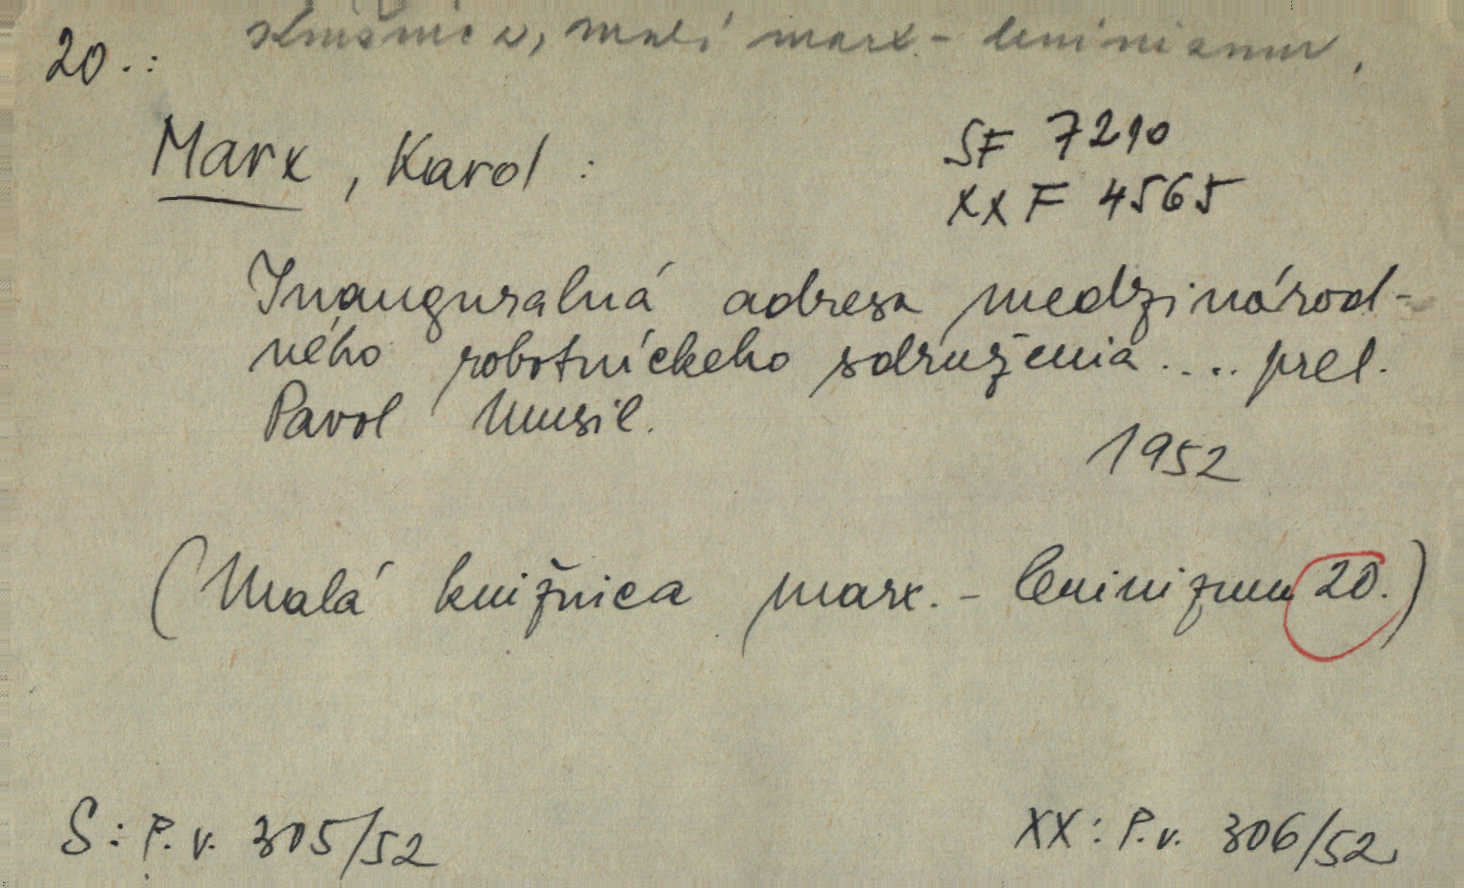 knižnica, malá marx.- leninizmu.
20.:
Marx, Karol:
SF 7210
XX F 4565
Inauguralná adresa medzinárod-
ného robotníckeho sdruženia.... prel.
Pavol Musil.
1952
(Malá knižnica marx. - leninizmu 20.)
S: P. v. 305/52
XX: P. v. 306/52